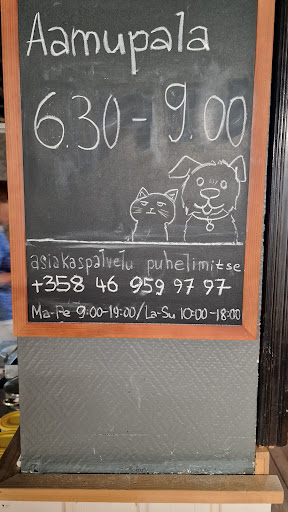 Aamupala
6.30 - 9.00
asiakaspalvelu puhelimitse
+358 46 959 97 97
Ma-Pe 9:00-19:00/La-Su 10:00-18:00